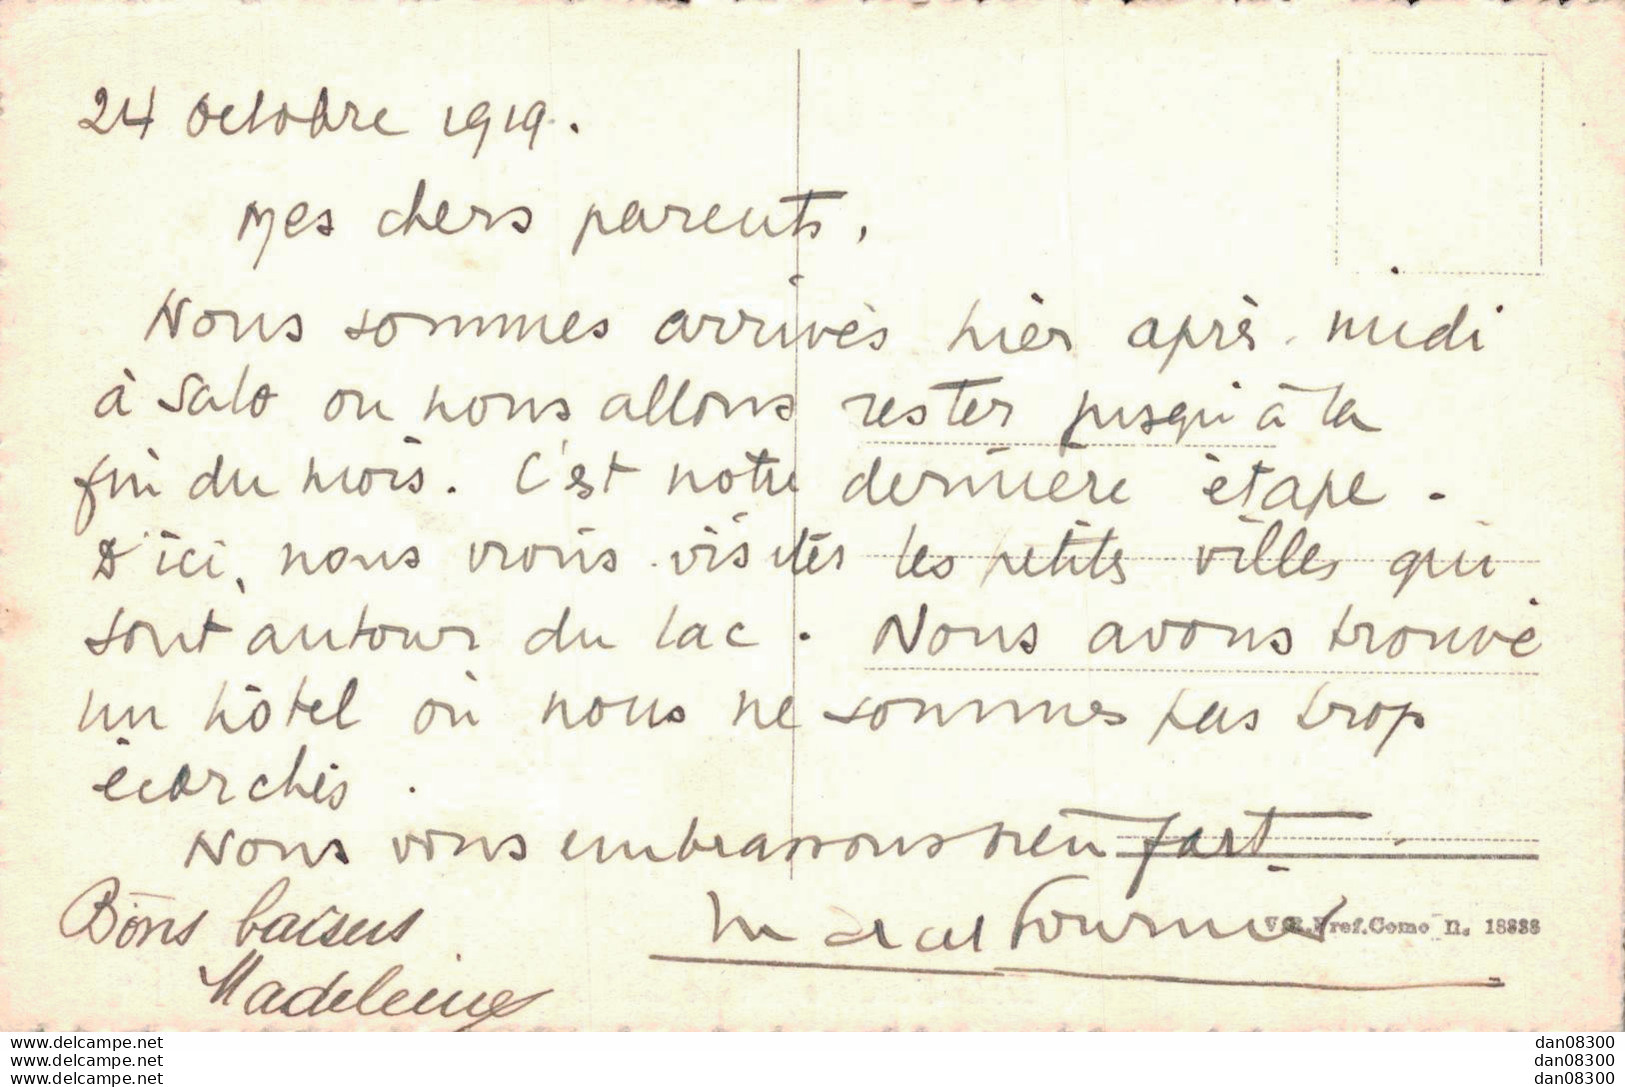 24 octobre 1919.
Mes chers parents,
Nous sommes arrivés hier après-midi
à Salo ou nous allons rester jusqu'à la
fin du mois. C'est notre dernière étape.
D'ici, nous irons visiter les petites villes qui
sont autour du lac. Nous avons trouvé
un hôtel où nous ne sommes pas trop
écorchés.
Nous vous embrassons bien fort.
Marcel Fournier
Bons baisers
Madeleine
Pref. Como n. 18838
www.delcampe.net dan08300
www.delcampe.net dan08300
www.delcampe.net dan08300